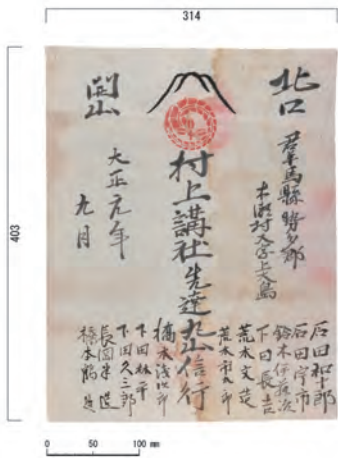 314
403
北口
群馬縣勢多郡
木瀬村大字上大島
村上講社先達丸山信行
開山
大正元年
九月
石田和十郎
石田宇市
鈴木伊藤次
下田長吉
荒木文造
荒木市九郎
橋本浅次郎
下田林平
下田久三郎
長岡半造
橋本
0 50 100 mm